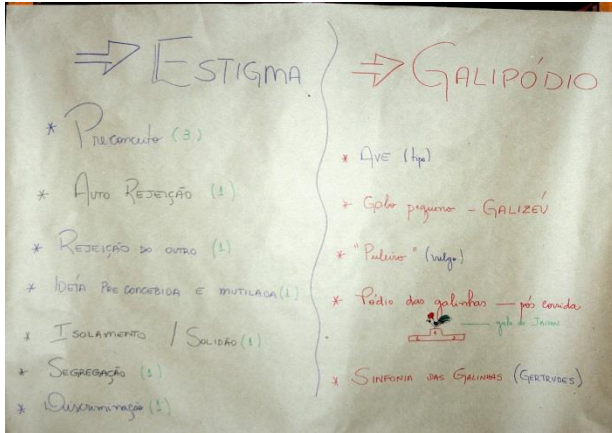 ⇒ ESTIGMA
* Preconceito (3)
* AUTO REJEIÇÃO (1)
* REJEIÇÃO DO OUTRO (1)
* IDEÍA PRE CONCEBIDA E MUTILADA (1)
* ISOLAMENTO / SOLIDÃO (1)
* SEGREGAÇÃO (1)
* Discriminação (1)
⇒ GALIPÓDIO
* AVE (tipo)
* Galo pequeno - GALIZEÚ
* "Puleiro" (vulgo)
* Pódio das galinhas — pós corrida
galo do
* SINFONIA DAS GALINHAS (GERTRUDES)